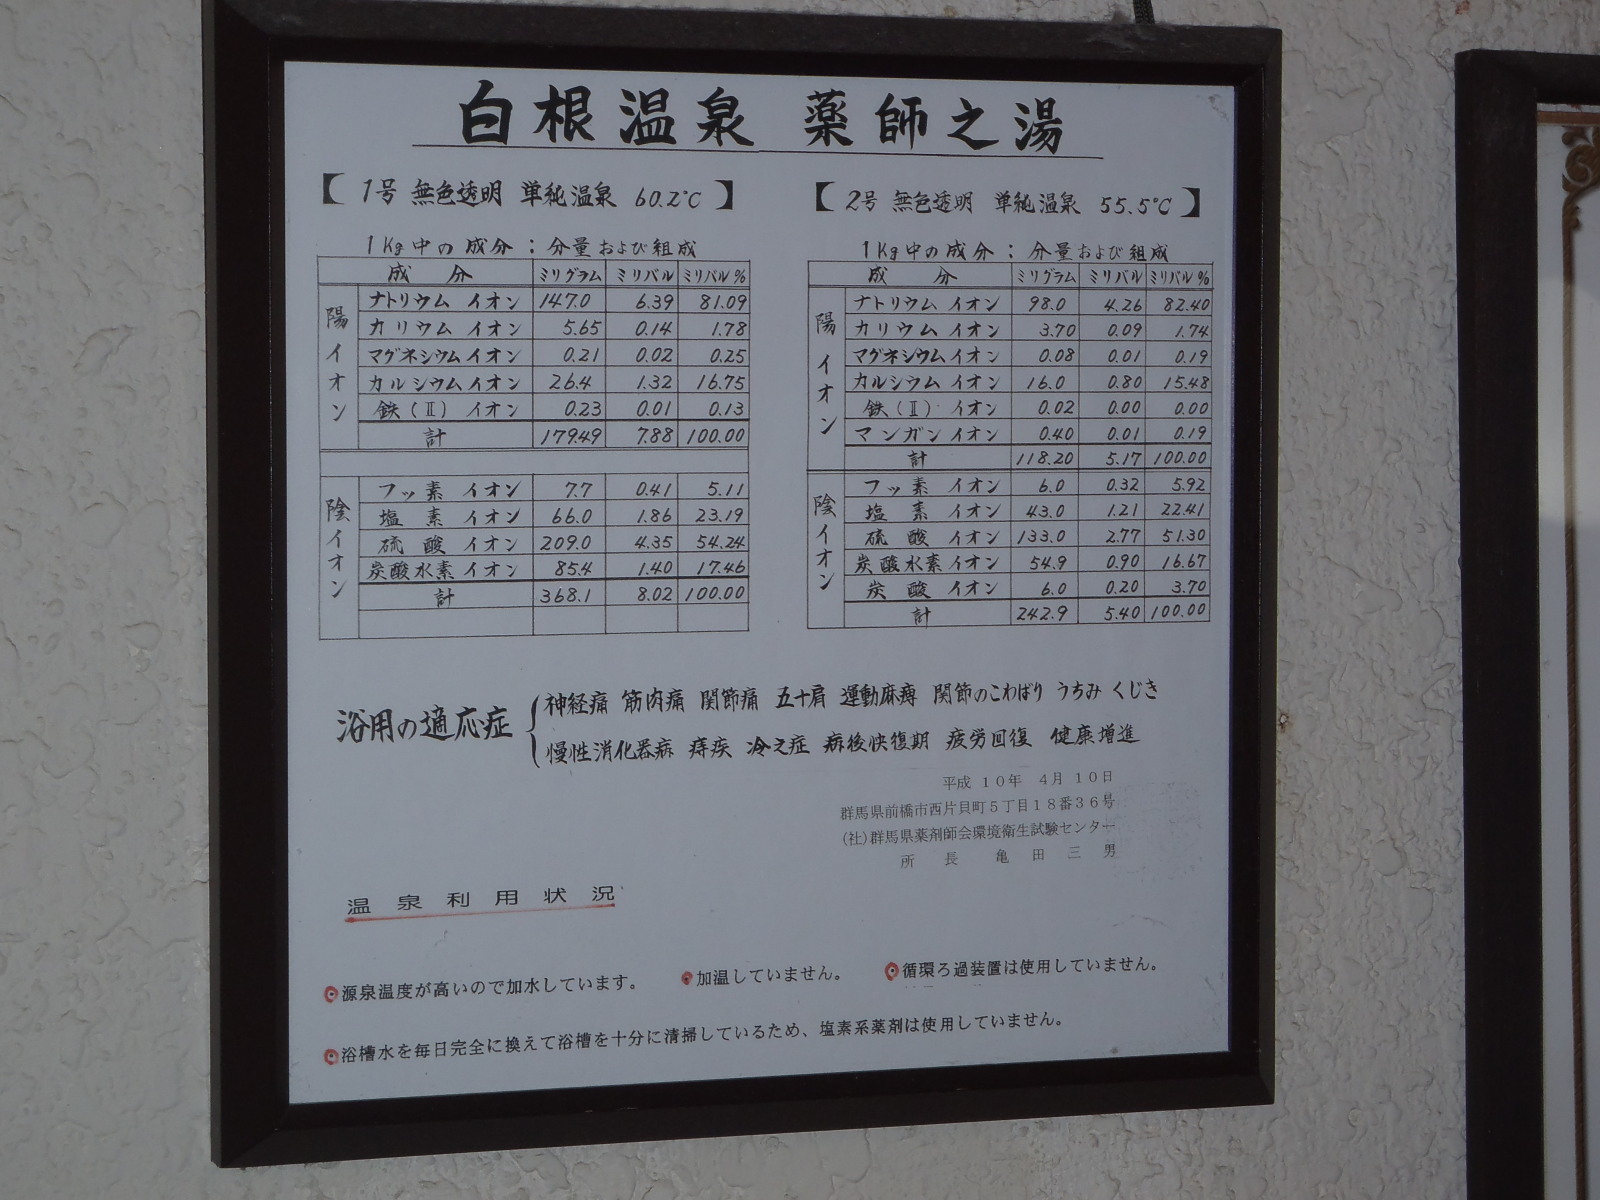 白根温泉 薬師之湯
【 1号 無色透明 単純温泉 60.2℃ 】
1Kg中の成分：分量および組成
成 分 ミリグラム ミリバル ミリバル%
陽イオン
ナトリウム イオン 147.0 6.39 81.09
カリウム イオン 5.65 0.14 1.78
マグネシウムイオン 0.21 0.02 0.25
カルシウムイオン 26.4 1.32 16.75
鉄(Ⅱ) イオン 0.23 0.01 0.13
計 179.49 7.88 100.00
陰イオン
フッ素 イオン 7.7 0.41 5.11
塩素 イオン 66.0 1.86 23.19
硫酸 イオン 209.0 4.35 54.24
炭酸水素 イオン 85.4 1.40 17.46
計 368.1 8.02 100.00
【 2号 無色透明 単純温泉 55.5℃ 】
1Kg中の成分：分量および組成
成 分 ミリグラム ミリバル ミリバル%
陽イオン
ナトリウム イオン 98.0 4.26 82.40
カリウム イオン 3.70 0.09 1.74
マグネシウムイオン 0.08 0.01 0.19
カルシウム イオン 16.0 0.80 15.48
鉄(Ⅱ) イオン 0.02 0.00 0.00
マンガン イオン 0.40 0.01 0.19
計 118.20 5.17 100.00
陰イオン
フッ素 イオン 6.0 0.32 5.92
塩素 イオン 43.0 1.21 22.41
硫酸 イオン 133.0 2.77 51.30
炭酸水素イオン 54.9 0.90 16.67
炭酸 イオン 6.0 0.20 3.70
計 242.9 5.40 100.00
浴用の適応症
神経痛 筋肉痛 関節痛 五十肩 運動麻痺 関節のこわばり うちみ くじき
慢性消化器病 痔疾 冷え症 病後快復期 疲労回復 健康増進
平成 10年 4月 10日
群馬県前橋市西片貝町5丁目18番36号
(社)群馬県薬剤師会環境衛生試験センター
所 長 亀 田 三 男
温 泉 利 用 状 況
源泉温度が高いので加水しています。 加温していません。 循環ろ過装置は使用していません。
浴槽水を毎日完全に換えて浴槽を十分に清掃しているため、塩素系薬剤は使用していません。